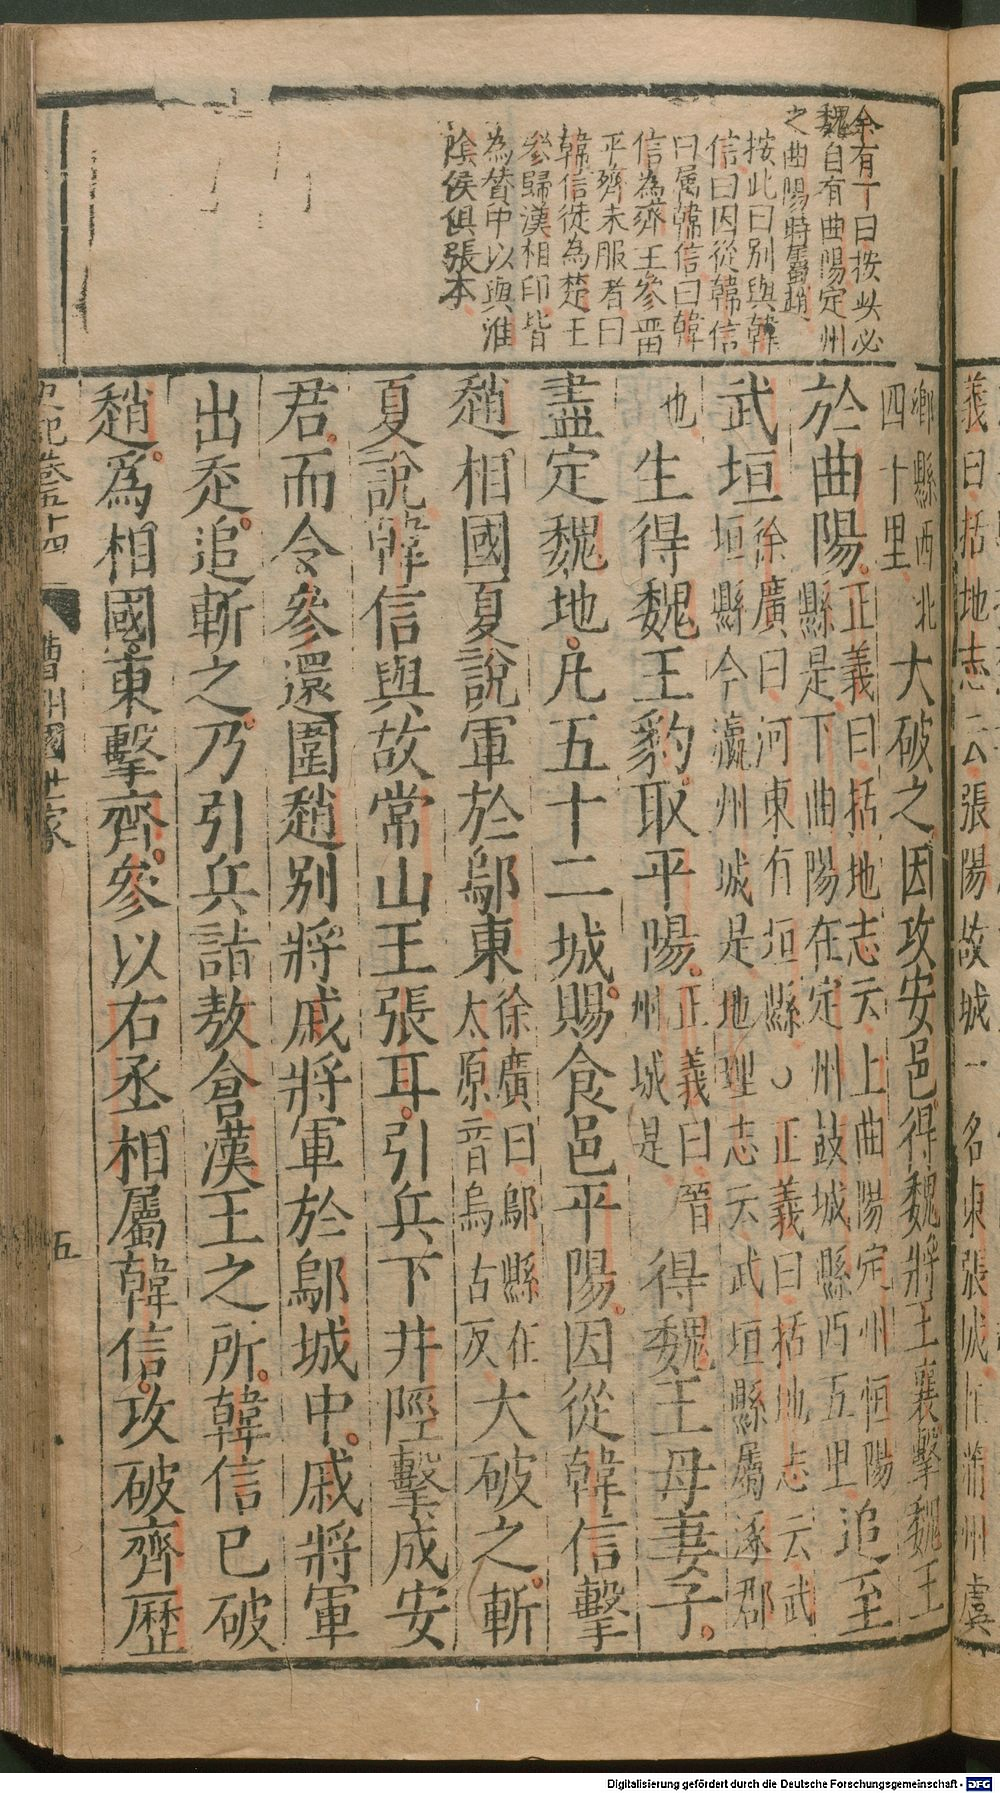 義曰括地志云張陽故城一名東張城在蒲州虞
余有丁曰按此必
魏自有曲陽定州
之曲陽時屬趙
按此曰別與韓
信曰因從韓信
曰屬韓信曰韓
信為齊王參留
平齊未服者曰
韓信徙為楚王
參歸漢相印皆
為贊中以與淮
陰侯俱張本
鄉縣西北
四十里
大破之因攻安邑得魏將王襄擊魏王
於曲陽。
正義曰括地志云上曲陽定州恒陽
縣是下曲陽在定州鼓城縣西五里
追至
武垣
徐廣曰河東有垣縣○正義曰括地志云武
垣縣今瀛州城是地理志云武垣縣屬涿郡
也
生得魏王豹。取平陽。
正義曰晉
州城是
得魏王母妻子。
盡定魏地。凡五十二城。賜食邑平陽。因從韓信擊
趙相國夏說軍於鄔東
徐廣曰鄔縣在
太原音烏古反
大破之。斬
夏說韓信與故常山王張耳。引兵下井陘擊成安
君。而令參還圍趙別將戚將軍於鄔城中。戚將軍
出走。追斬之。乃引兵詣敖倉漢王之所。韓信已破
趙。爲相國。東擊齊。參以右丞相屬韓信。攻破齊歷
史記卷五十四
曹相國世家
五
Digitalisierung gefördert durch die Deutsche Forschungsgemeinschaft - DFG